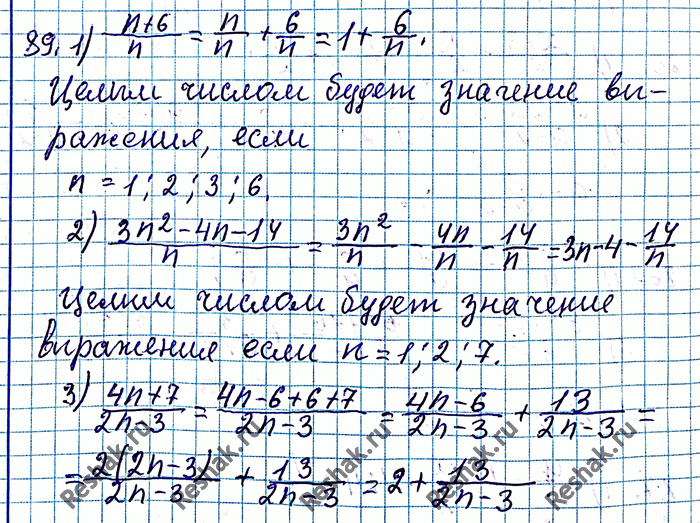 89. 1) (n+6)/n = n/n + 6/n = 1 + 6/n.
Целым числом будет значение вы-
ражения, если
n = 1; 2; 3; 6.
2) (3n² - 4n - 14)/n = 3n²/n - 4n/n - 14/n = 3n - 4 - 14/n
Целым числом будет значение
выражения если n = 1; 2; 7.
3) (4n+7)/(2n-3) = (4n-6+6+7)/(2n-3) = (4n-6)/(2n-3) + 13/(2n-3) =
= 2(2n-3)/(2n-3) + 13/(2n-3) = 2 + 13/(2n-3)
Reshak.ru Reshak.ru Reshak.ru Reshak.ru